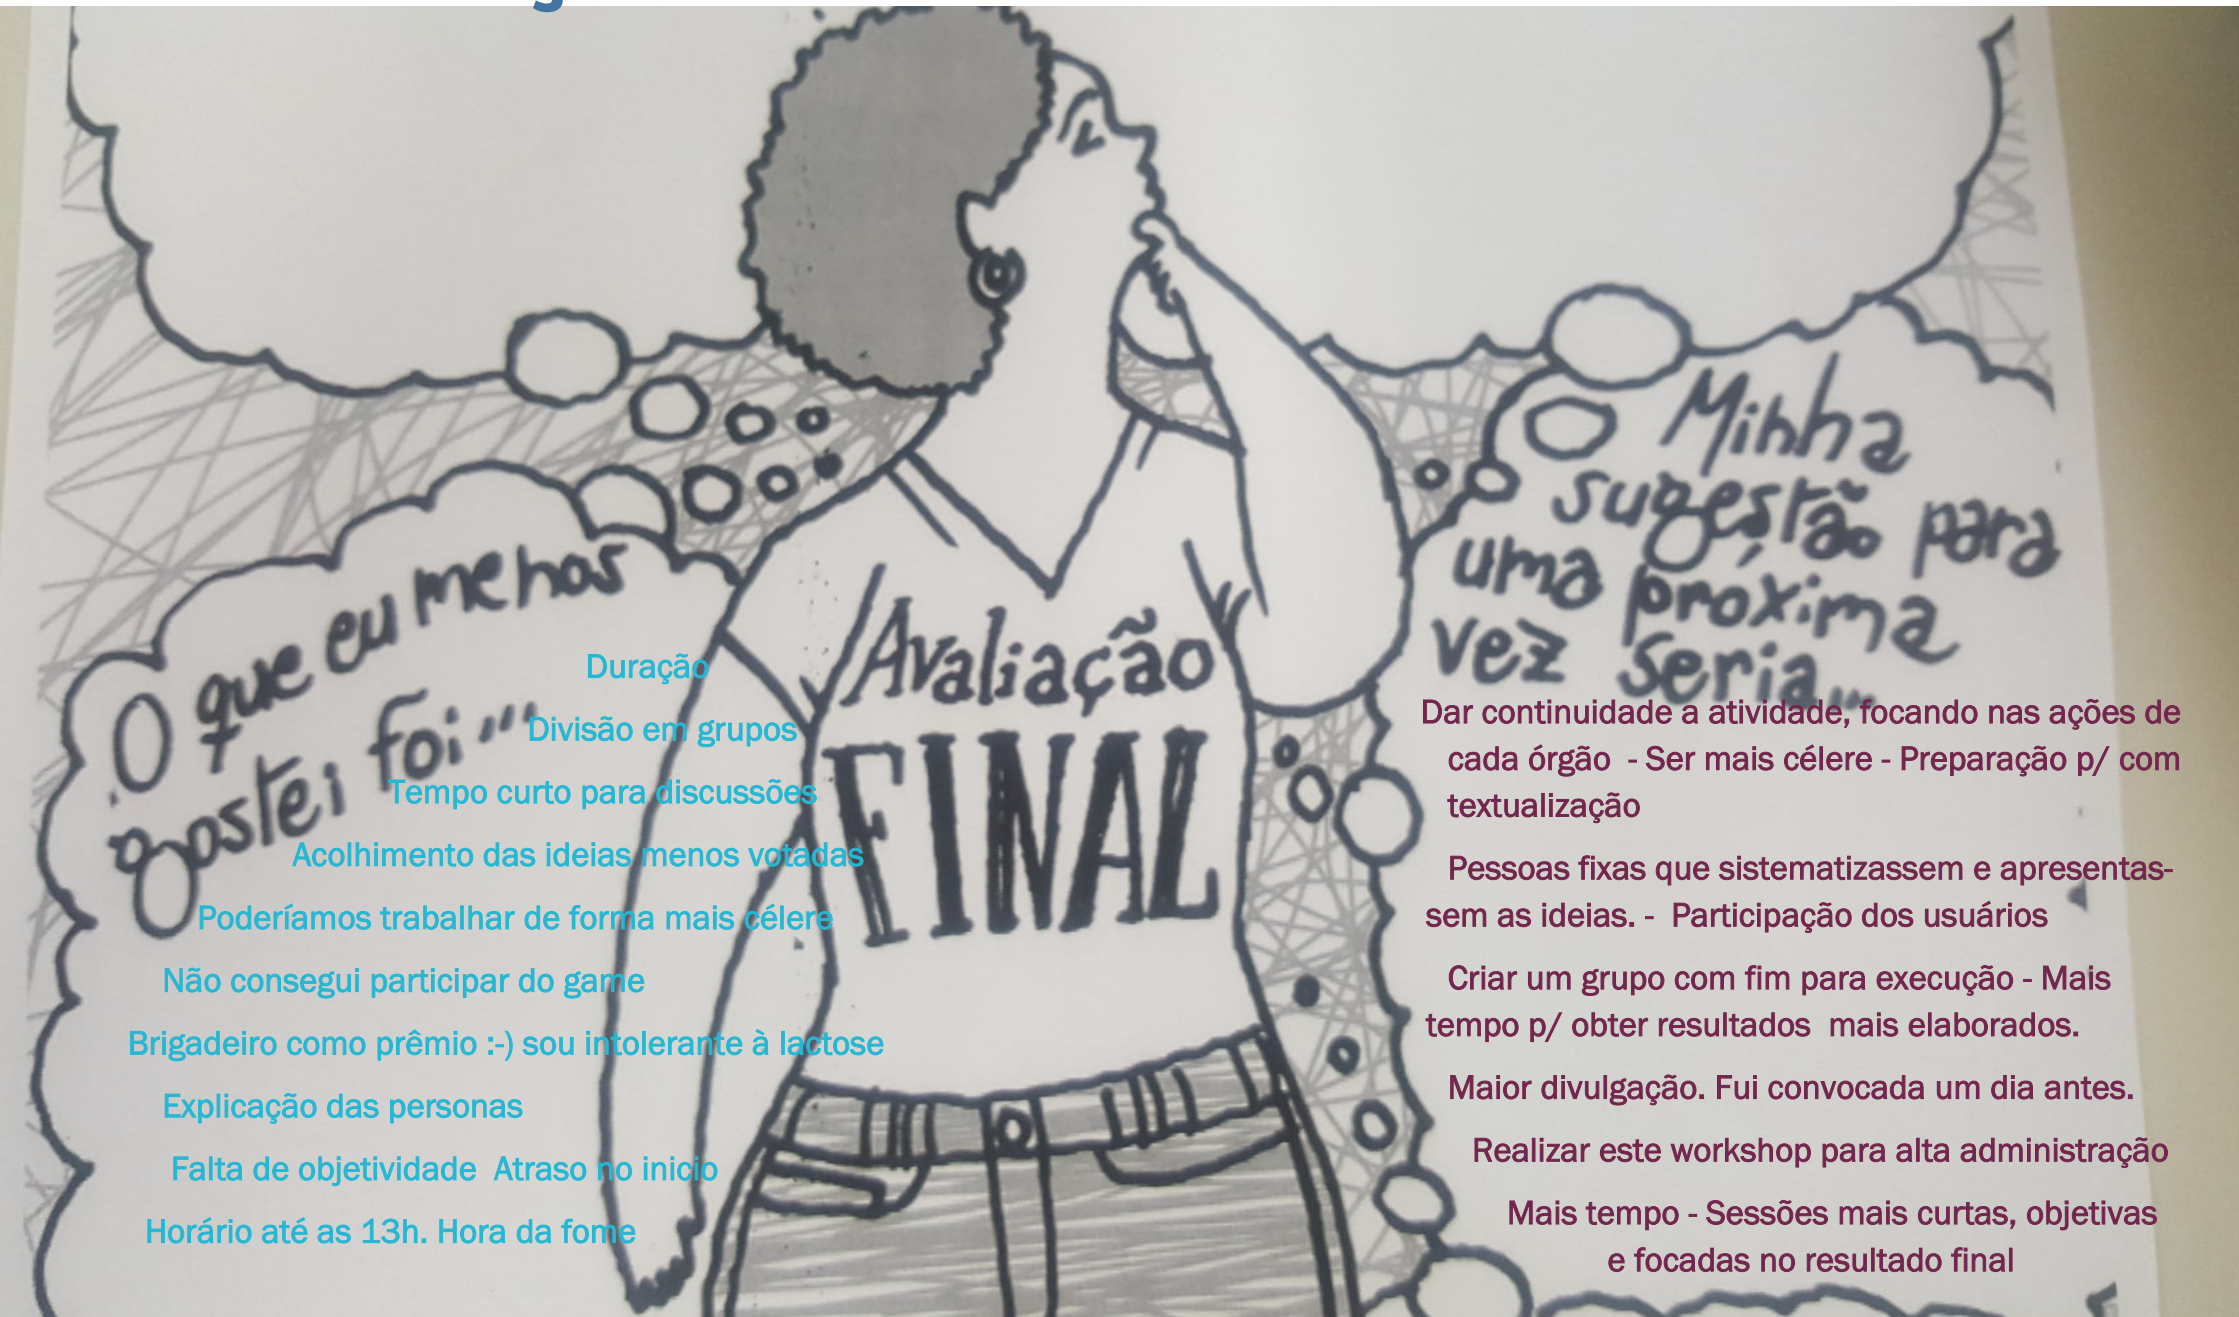 O que eu menos
gostei foi...
Duração
Divisão em grupos
Tempo curto para discussões
Acolhimento das ideias menos votadas
Poderíamos trabalhar de forma mais célere
Não consegui participar do game
Brigadeiro como prêmio :-) sou intolerante à lactose
Explicação das personas
Falta de objetividade  Atraso no inicio
Horário até as 13h. Hora da fome
Avaliação
FINAL
Minha
sugestão para
uma próxima
vez seria...
Dar continuidade a atividade, focando nas ações de
cada órgão  - Ser mais célere - Preparação p/ com
textualização
Pessoas fixas que sistematizassem e apresentas-
sem as ideias. -  Participação dos usuários
Criar um grupo com fim para execução - Mais
tempo p/ obter resultados  mais elaborados.
Maior divulgação. Fui convocada um dia antes.
Realizar este workshop para alta administração
Mais tempo - Sessões mais curtas, objetivas
e focadas no resultado final